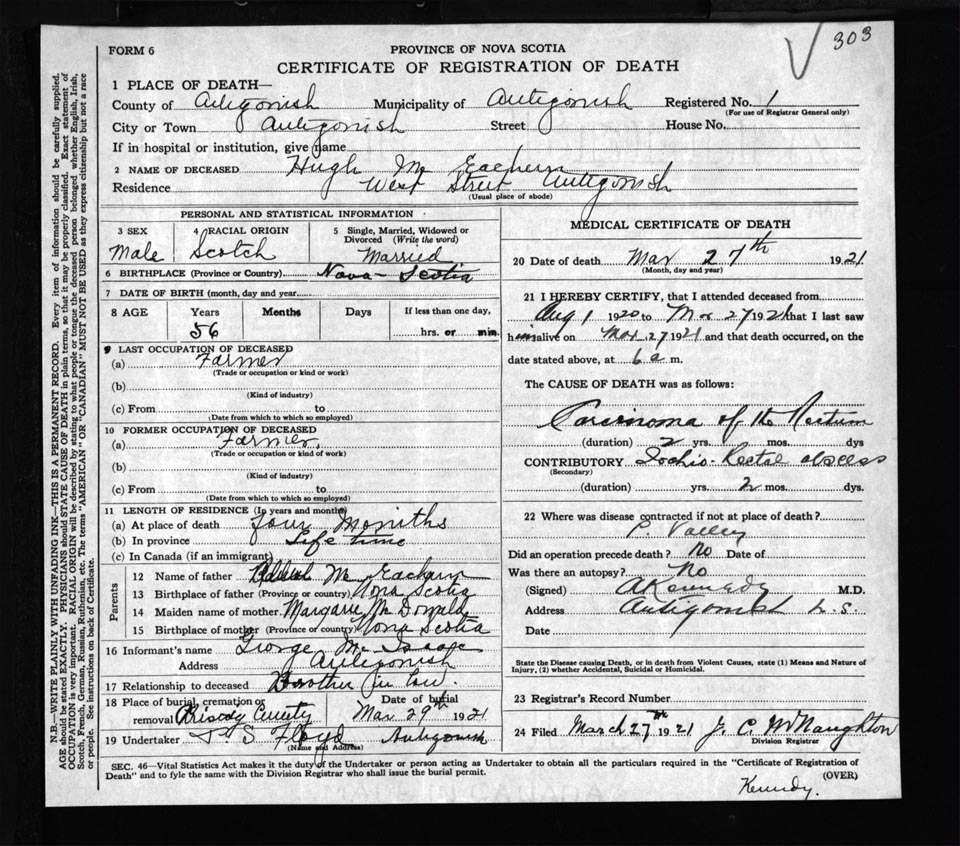 303
FORM 6
PROVINCE OF NOVA SCOTIA
CERTIFICATE OF REGISTRATION OF DEATH
1 PLACE OF DEATH—
County of Antigonish Municipality of Antigonish Registered No. 1
(For use of Registrar General only)
City or Town Antigonish Street House No.
If in hospital or institution, give name
2 NAME OF DECEASED Hugh Mc Eachern
Residence West Street Antigonish
(Usual place of abode)
PERSONAL AND STATISTICAL INFORMATION
3 SEX 4 RACIAL ORIGIN 5 Single, Married, Widowed or
Divorced (Write the word)
Male Scotch Married
6 BIRTHPLACE (Province or Country) Nova-Scotia
7 DATE OF BIRTH (month, day and year)
8 AGE Years Months Days If less than one day,
56 hrs. or min.
9 LAST OCCUPATION OF DECEASED
(a) Farmer
(Trade or occupation or kind of work)
(b)
(Kind of industry)
(c) From to
(Date from which to which so employed)
10 FORMER OCCUPATION OF DECEASED
(a) Farmer
(Trade or occupation or kind of work)
(b)
(Kind of industry)
(c) From to
(Date from which to which so employed)
11 LENGTH OF RESIDENCE (In years and months)
(a) At place of death four Months
(b) In province Life time
(c) In Canada (if an immigrant)
Parents
12 Name of father Mc Eachern
13 Birthplace of father (Province or country) Nova Scotia
14 Maiden name of mother Margaret Mc Donald
15 Birthplace of mother (Province or country) Nova Scotia
16 Informant's name George Mc Isaac
Address Antigonish
17 Relationship to deceased Brother in law.
18 Place of burial, cremation or Date of burial
removal County Mar 29th 1921
19 Undertaker S Floyd Antigonish
(Name and Address)
MEDICAL CERTIFICATE OF DEATH
20 Date of death Mar 27th 1921
(Month, day and year)
21 I HEREBY CERTIFY, that I attended deceased from
Aug 1 1920 to Mar 27 1921 that I last saw
him alive on Mar. 27 1921 and that death occurred, on the
date stated above, at 6 a m.
The CAUSE OF DEATH was as follows:
Carcinoma of the Rectum
(duration) 2 yrs. mos. dys
CONTRIBUTORY Ischio-Rectal abscess
(Secondary)
(duration) yrs. 2 mos. dys.
22 Where was disease contracted if not at place of death?
P. Valley
Did an operation precede death? No Date of
Was there an autopsy? No
(Signed) A Kennedy M.D.
Address Antigonish N.S.
Date
State the Disease causing Death, or in death from Violent Causes, state (1) Means and Nature of
Injury, (2) whether Accidental, Suicidal or Homicidal.
23 Registrar's Record Number
24 Filed March 27th 1921 J. C. McNaughton
Division Registrar
SEC. 46—Vital Statistics Act makes it the duty of the Undertaker or person acting as Undertaker to obtain all the particulars required in the "Certificate of Registration of
Death" and to fyle the same with the Division Registrar who shall issue the burial permit.
(OVER)
Kennedy.
N.B.—WRITE PLAINLY WITH UNFADING INK—THIS IS A PERMANENT RECORD. Every item of information should be carefully supplied.
AGE should be stated EXACTLY. PHYSICIANS should STATE CAUSE OF DEATH in plain terms, so that it may be properly classified. Exact statement of
OCCUPATION is very important. RACIAL ORIGIN will be described by stating to what people or tongue the deceased person belonged whether English, Irish,
Scotch, French, German, Russian, Ruthenian, etc. The terms "AMERICAN" OR "CANADIAN" MUST NOT BE USED as they express citizenship but not a race
or people. See instructions on back of Certificate.